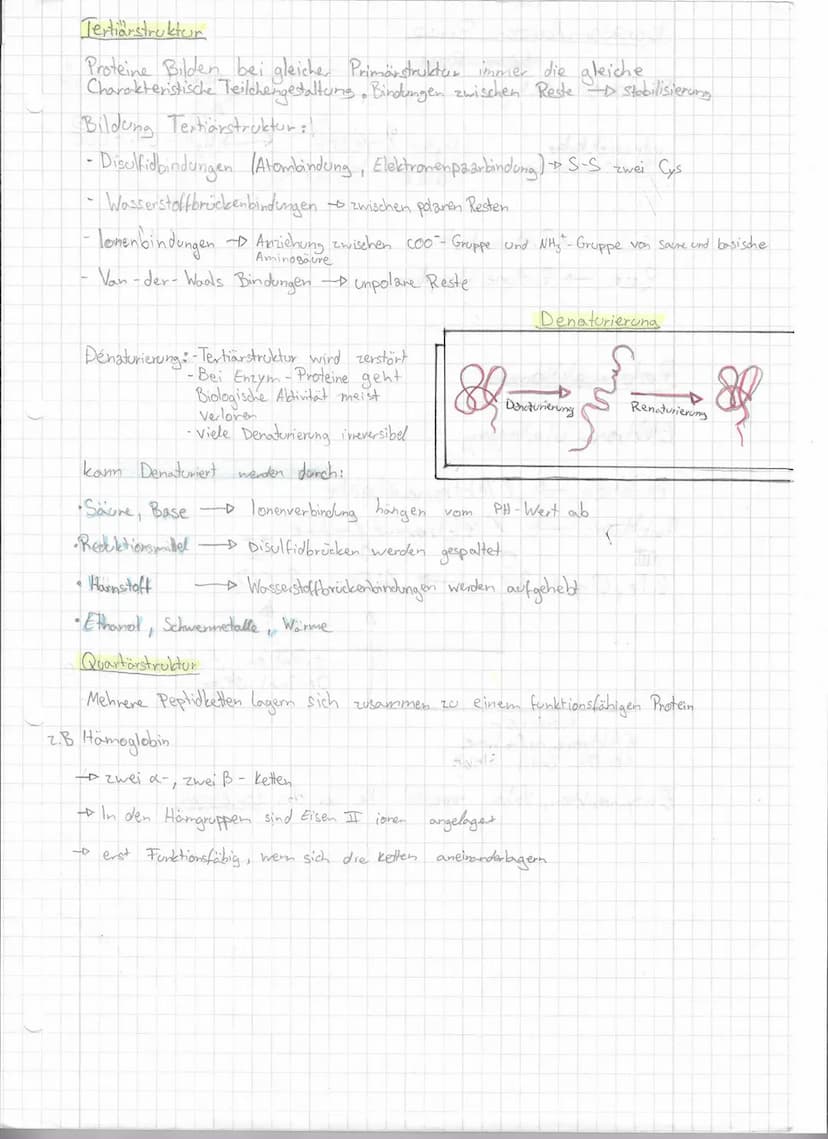 Tertiärstruktur
Proteine Bilden bei gleicher Primärstruktur immer die gleiche
Charakteristische Teilchengestaltung. Bindungen zwischen Reste → Stabilisierung
Bildung Tertiärstruktur:
- Disulfidbindungen (Atombindung, Elektronenpaarbindung) → S-S zwei Cys
- Wasserstoffbrückenbindungen → zwischen polaren Resten
- Ionenbindungen → Anziehung zwischen COO⁻-Gruppe und NH₃⁺-Gruppe von saure und basische
Aminosäure
- Van-der-Waals Bindungen → unpolare Reste
Denaturierung
Denaturierung: - Tertiärstruktur wird zerstört
- Bei Enzym-Proteine geht
Biologische Aktivität meist
verloren
- viele Denaturierung irreversibel
Denaturierung
Renaturierung
kann Denaturiert werden durch:
• Säure, Base → Ionenverbindung hängen vom PH-Wert ab
• Reduktionsmittel → Disulfidbrücken werden gespaltet
• Harnstoff → Wasserstoffbrückenbindungen werden aufgehebt
• Ethanol, Schwermetalle, Wärme
Quartärstruktur
Mehrere Peptidketten lagern sich zusammen zu einem funktionsfähigen Protein
z.B Hämoglobin
→ zwei α-, zwei β-Ketten
→ In den Hämgruppen sind Eisen II ionen angelagert
→ erst Funktionsfähig, wenn sich die Ketten aneinanderlagern